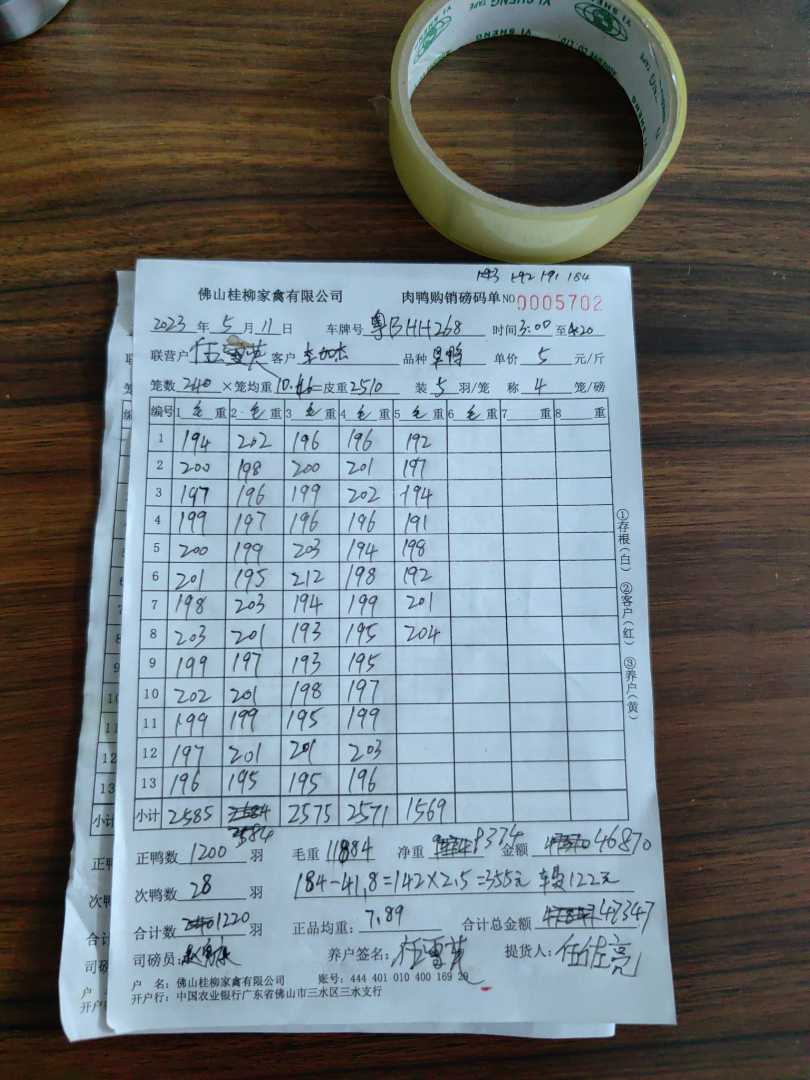 YI SHENG TAPE
YI SHENG
193 192 191 184
佛山桂柳家禽有限公司 肉鸭购销磅码单 NO 0005702
2023 年 5 月 11 日 车牌号 粤BHH268 时间 3:00 至 4:20
联营户 任雪英 客户 品种 单价 5 元/斤
笼数 240 ×笼均重 10.46 =皮重 2510 装 5 羽/笼 称 4 笼/磅
编号 1 毛 重 2 毛 重 3 毛 重 4 毛 重 5 毛 重 6 毛 重 7 重 8 重
1 194 202 196 196 192
2 200 198 200 201 197
3 197 196 199 202 194
4 199 197 196 196 191
5 200 199 203 194 198
6 201 195 212 198 192
7 198 203 194 199 201
8 203 201 193 195 204
9 199 197 193 195
10 202 201 198 197
11 199 199 195 199
12 197 201 201 203
13 196 195 195 196
小计 2585 2584 2575 2571 1569
2584
①存根(白) ②客户(红) ③养户(黄)
正鸭数 1200 羽 毛重 11884 净重 9374 金额 46870
次鸭数 28 羽 184-41.8=142×2.5=355元 122元
合计数 1220 羽 正品均重: 7.89 合计总金额 47347
司磅员: 养户签名: 任雪英 提货人: 任佐亮
户 名: 佛山桂柳家禽有限公司 账号: 444 401 010 400 169 29
开户行: 中国农业银行广东省佛山市三水区三水支行